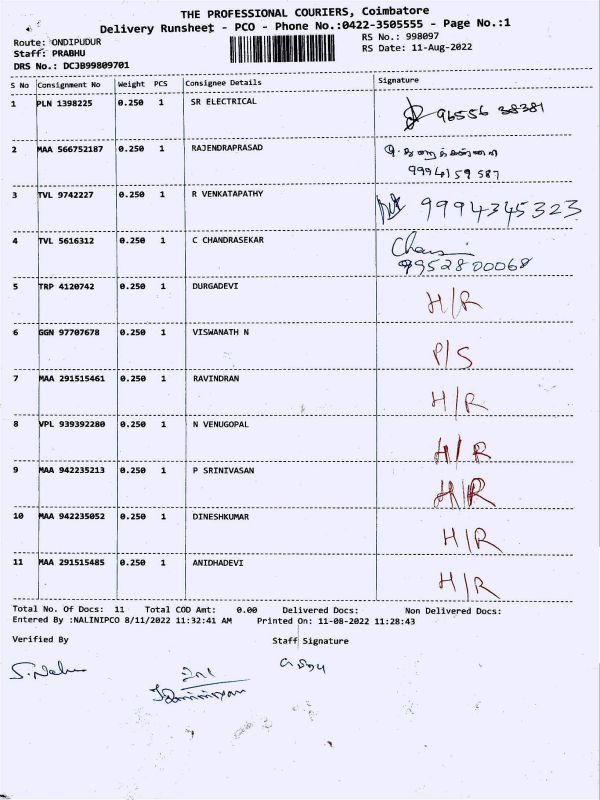 THE PROFESSIONAL COURIERS, Coimbatore
Delivery Runsheet - PCO - Phone No.:0422-3505555 - Page No.:1
Route: ONDIPUDUR
Staff: PRABHU
DRS No.: DCJB99809701
RS No.: 998097
RS Date: 11-Aug-2022
S No Consignment No Weight PCS Consignee Details Signature
1 PLN 1398225 0.250 1 SR ELECTRICAL 96556 38381
2 MAA 566752187 0.250 1 RAJENDRAPRASAD
9994159 587
3 TVL 9742227 0.250 1 R VENKATAPATHY 9994345323
4 TVL 5616312 0.250 1 C CHANDRASEKAR
9952800068
5 TRP 4120742 0.250 1 DURGADEVI H/R
6 GGN 97707678 0.250 1 VISWANATH N P/S
7 MAA 291515461 0.250 1 RAVINDRAN H/R
8 VPL 939392280 0.250 1 N VENUGOPAL H/R
9 MAA 942235213 0.250 1 P SRINIVASAN H/R
10 MAA 942235052 0.250 1 DINESHKUMAR H/R
11 MAA 291515485 0.250 1 ANIDHADEVI H/R
Total No. Of Docs: 11 Total COD Amt: 0.00 Delivered Docs: Non Delivered Docs:
Entered By :NALINIPCO 8/11/2022 11:32:41 AM Printed On: 11-08-2022 11:28:43
Verified By Staff Signature